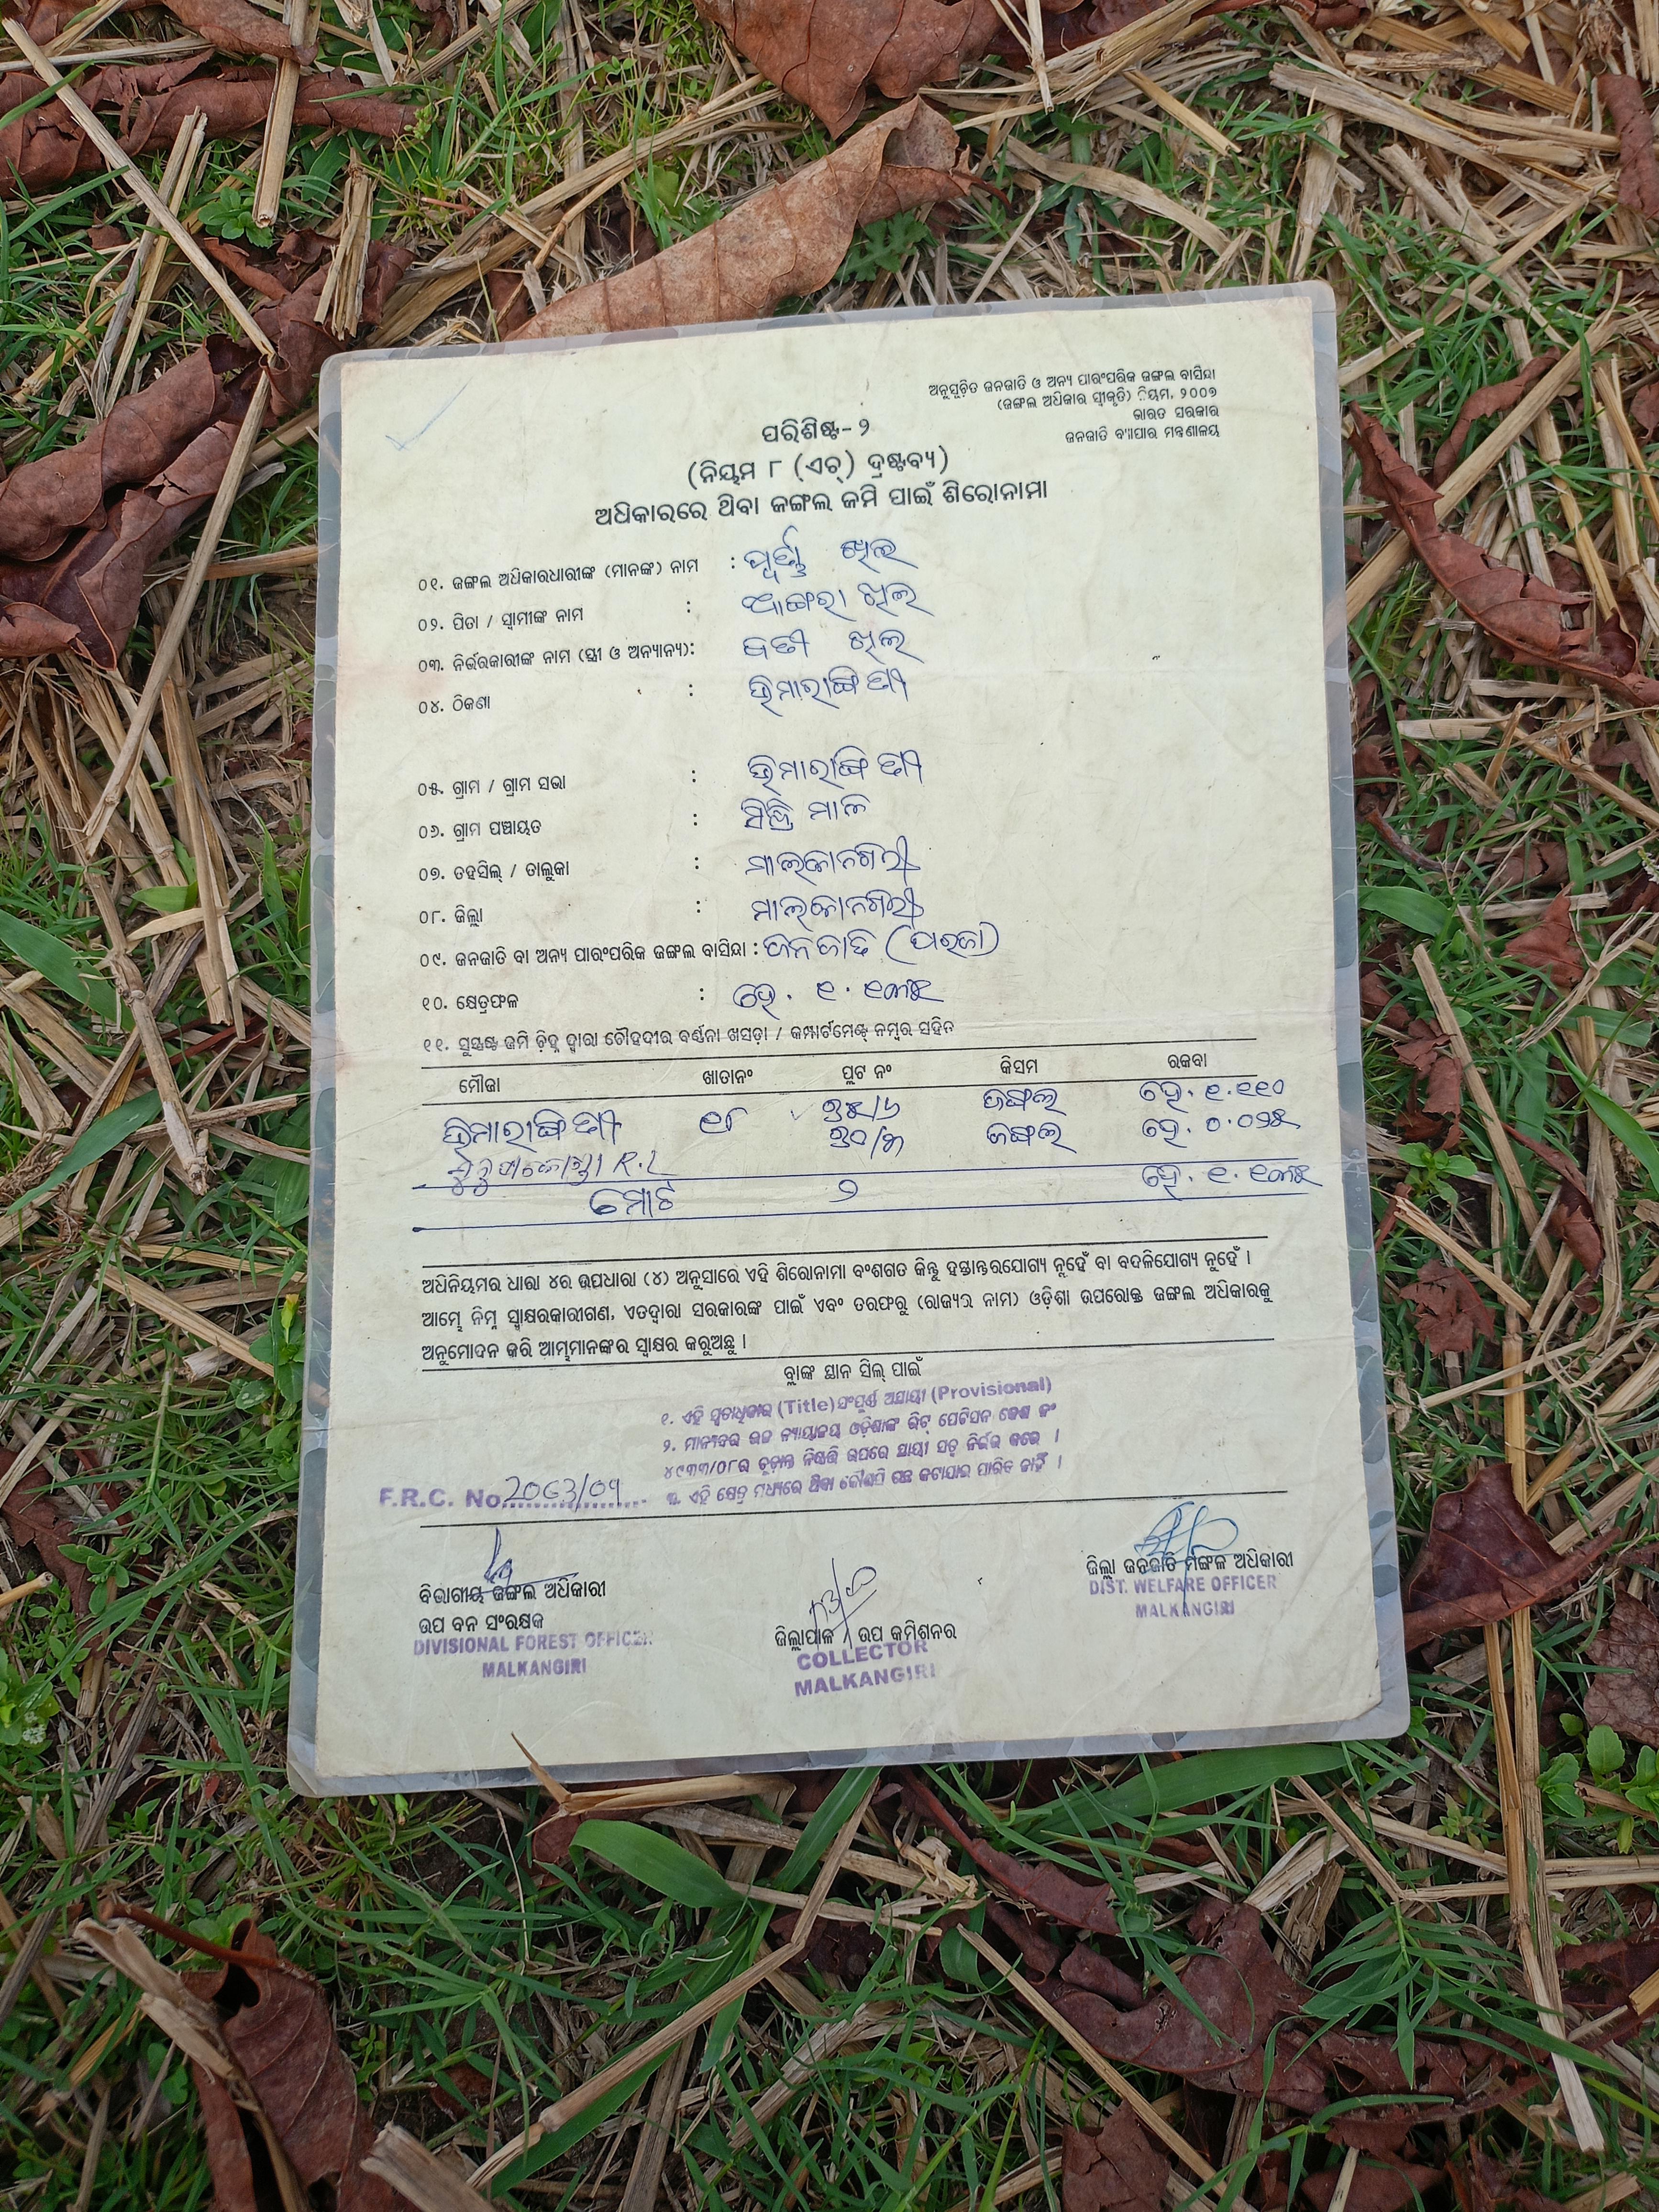 ଅନୁସୂଚିତ ଜନଜାତି ଓ ଅନ୍ୟ ପାରଂପରିକ ଜଙ୍ଗଲ ବାସିନ୍ଦା
(ଜଙ୍ଗଲ ଅଧିକାର ସ୍ୱୀକୃତି) ନିୟମ, ୨୦୦୭
ଭାରତ ସରକାର
ଜନଜାତି ବ୍ୟାପାର ମନ୍ତ୍ରଣାଳୟ
ପରିଶିଷ୍ଟ-୨
(ନିୟମ ୮ (ଏଚ୍) ଦ୍ରଷ୍ଟବ୍ୟ)
ଅଧିକାରରେ ଥିବା ଜଙ୍ଗଲ ଜମି ପାଇଁ ଶିରୋନାମା
୦୧. ଜଙ୍ଗଲ ଅଧିକାରଧାରୀଙ୍କ (ମାନଙ୍କ) ନାମ :
୦୨. ପିତା / ସ୍ୱାମୀଙ୍କ ନାମ :
୦୩. ନିର୍ଭରକାରୀଙ୍କ ନାମ (ସ୍ତ୍ରୀ ଓ ଅନ୍ୟାନ୍ୟ):
୦୪. ଠିକଣା :
୦୫. ଗ୍ରାମ / ଗ୍ରାମ ସଭା :
୦୬. ଗ୍ରାମ ପଞ୍ଚାୟତ :
୦୭. ତହସିଲ୍ / ତାଲୁକା : ମାଲକାନଗିରି
୦୮. ଜିଲ୍ଲା : ମାଲକାନଗିରି
୦୯. ଜନଜାତି ବା ଅନ୍ୟ ପାରଂପରିକ ଜଙ୍ଗଲ ବାସିନ୍ଦା : ଜନଜାତି (ପରଜା)
୧୦. କ୍ଷେତ୍ରଫଳ : ହେ. ୧.୧୩୫
୧୧. ସୁସ୍ପଷ୍ଟ ଜମି ଚିହ୍ନ ଦ୍ୱାରା ଚୌହଦୀର ବର୍ଣ୍ଣନା ଖସଡ଼ା / କମ୍ପାର୍ଟମେଣ୍ଟ୍ ନମ୍ବର ସହିତ
ମୌଜା ଖାତାନଂ ପ୍ଲଟ ନଂ କିସମ ରକବା
ଜଙ୍ଗଲ ହେ. ୧.୧୧୦
ଜଙ୍ଗଲ ହେ. ୦.୦୨୫
R.I
ମୋଟ ୨ ହେ. ୧.୧୩୫
ଅଧିନିୟମର ଧାରା ୪ର ଉପଧାରା (୪) ଅନୁସାରେ ଏହି ଶିରୋନାମା ବଂଶଗତ କିନ୍ତୁ ହସ୍ତାନ୍ତରଯୋଗ୍ୟ ନୁହେଁ ବା ବଦଳିଯୋଗ୍ୟ ନୁହେଁ ।
ଆମ୍ଭେ ନିମ୍ନ ସ୍ୱାକ୍ଷରକାରୀଗଣ, ଏତଦ୍ୱାରା ସରକାରଙ୍କ ପାଇଁ ଏବଂ ତରଫରୁ (ରାଜ୍ୟର ନାମ) ଓଡ଼ିଶା ଉପରୋକ୍ତ ଜଙ୍ଗଲ ଅଧିକାରକୁ
ଅନୁମୋଦନ କରି ଆମ୍ଭମାନଙ୍କର ସ୍ୱାକ୍ଷର କରୁଅଛୁ ।
ବ୍ଲାଙ୍କ ସ୍ଥାନ ସିଲ୍ ପାଇଁ
୧. ଏହି ସ୍ୱତ୍ୱାଧିକାର (Title) ସଂପୂର୍ଣ୍ଣ ଅସ୍ଥାୟୀ (Provisional)
୨. ମାନ୍ୟବର ଉଚ୍ଚ ନ୍ୟାୟାଳୟ ଓଡ଼ିଶାଙ୍କ ରିଟ୍ ପେଟିସନ କେଶ ନଂ
୪୯୩୩/୦୮ର ଚୂଡ଼ାନ୍ତ ନିଷ୍ପତ୍ତି ଉପରେ ସ୍ଥାୟୀ ସତ୍ୱ ନିର୍ଭର କରେ ।
୩. ଏହି କ୍ଷେତ୍ର ମଧ୍ୟରେ ଥିବା କୌଣସି ଗଛ କଟାଯାଇ ପାରିବ ନାହିଁ ।
F.R.C. No. 2063/09
ବିଭାଗୀୟ ଜଙ୍ଗଲ ଅଧିକାରୀ
ଉପ ବନ ସଂରକ୍ଷକ
DIVISIONAL FOREST OFFICER
MALKANGIRI
ଜିଲ୍ଲାପାଳ / ଉପ କମିଶନର
COLLECTOR
MALKANGIRI
ଜିଲ୍ଲା ଜନଜାତି ମଙ୍ଗଳ ଅଧିକାରୀ
DIST. WELFARE OFFICER
MALKANGIRI